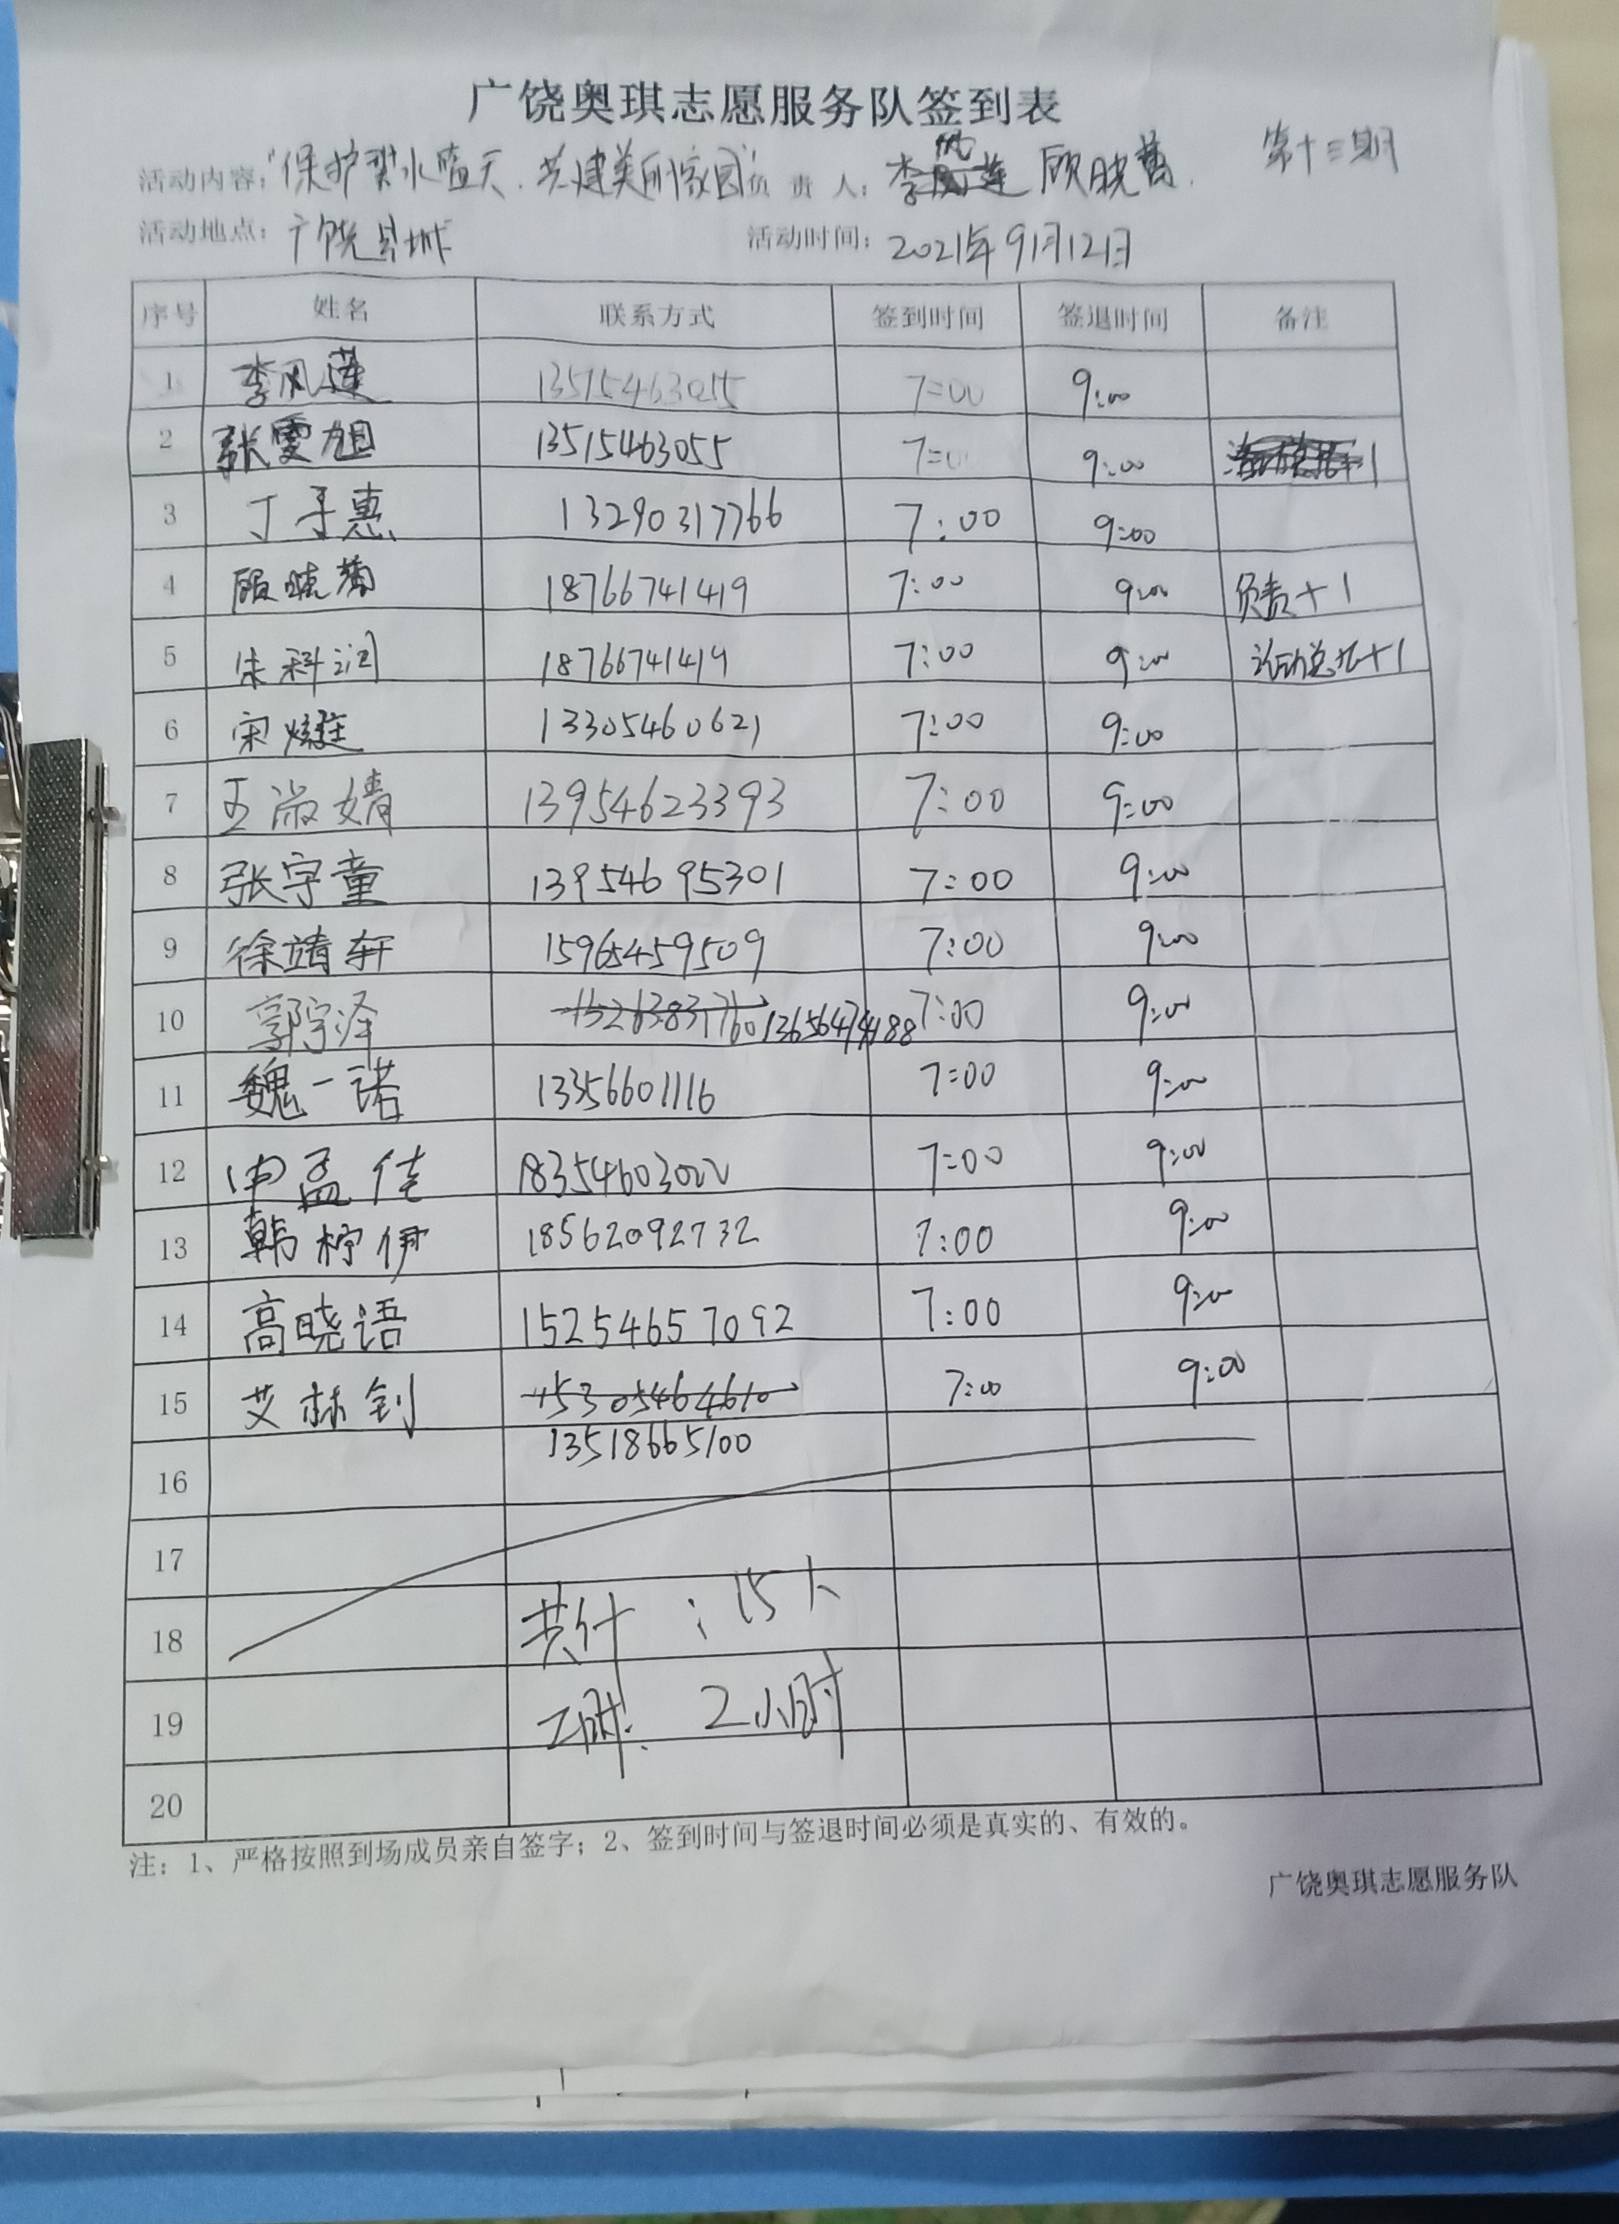 广饶奥琪志愿服务队签到表
第十三期
活动内容：“保护碧水蓝天，共建美丽家园” 负责人：李凤莲 顾晓茜
活动地点：广饶县城 活动时间：2021年9月12日
序号 姓名 联系方式 签到时间 签退时间 备注
1 李凤莲 7:00 9:00
2 张雯旭 13515463055 7:00 9:00
3 丁予惠 13290317766 7:00 9:00
4 18766741419 7:00 9:00 负责+1
5 朱科润 18766741419 7:00 9:00 活动总结+1
6 宋 13305460621 7:00 9:00
7 王淑婧 13954623393 7:00 9:00
8 张宇童 13954695301 7:00 9:00
9 徐靖轩 15965459509 7:00 9:00
10 郭宇泽 15263831760 13656474188 7:00 9:00
11 魏一诺 13356601116 7:00 9:00
12 申孟佳 18354603000 7:00 9:00
13 韩柠伊 18562092732 7:00 9:00
14 高晓语 15254657092 7:00 9:00
15 艾林钊 15305464610 7:00 9:00
13518665100
16
17
18 共计：15人
19 工时：2小时
20
注：1、严格按照到场成员亲自签字；2、签到时间与签退时间必须是真实的、有效的。
广饶奥琪志愿服务队